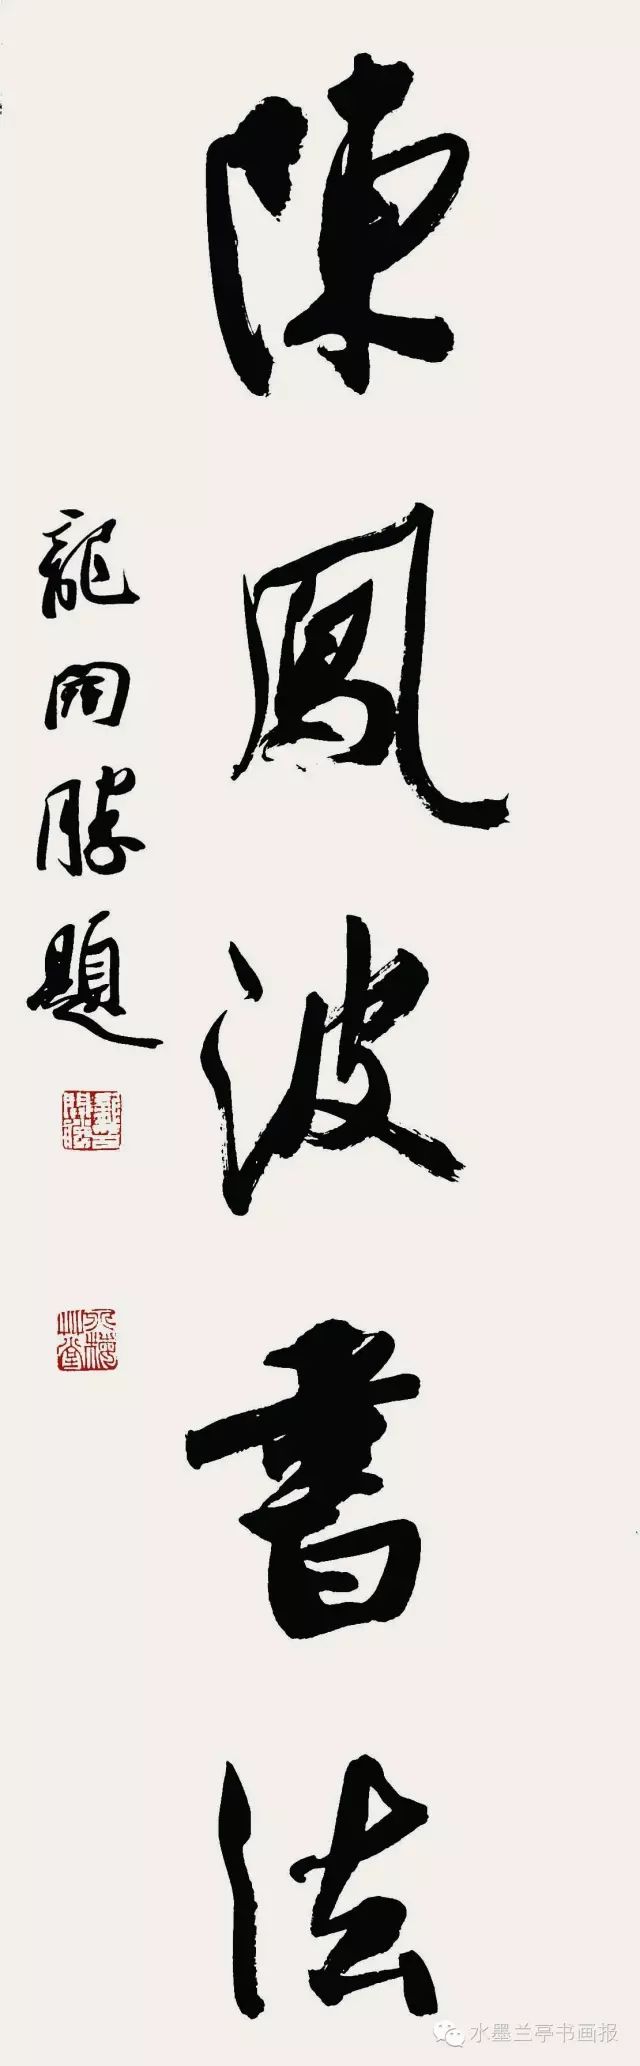 陳鳳波書法
龍開勝題
水墨兰亭书画报